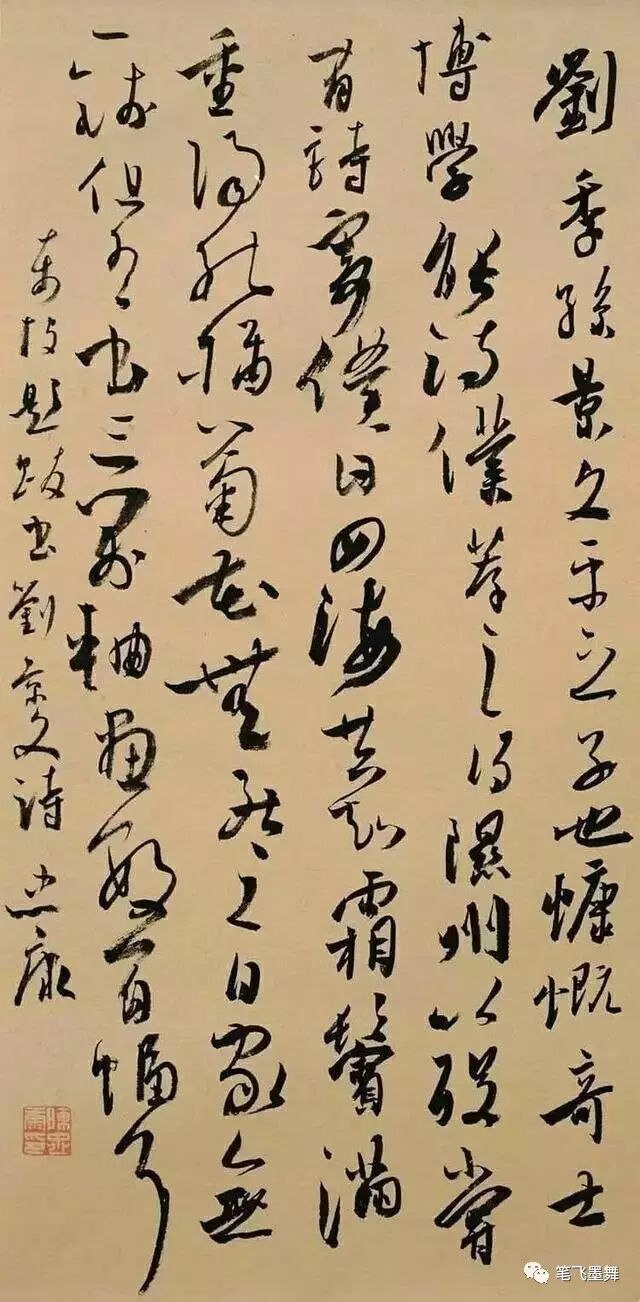 劉季孫景文平之子也慷慨奇士
博學能詩僕薦之得隰州以歿嘗
有詩寄僕曰四海共知霜鬢滿
重陽能插菊花無死之日家無
一錢但有書三萬軸畫數百幅耳
東坡題跋書劉景文詩 忠康
陳忠康印
笔飞墨舞